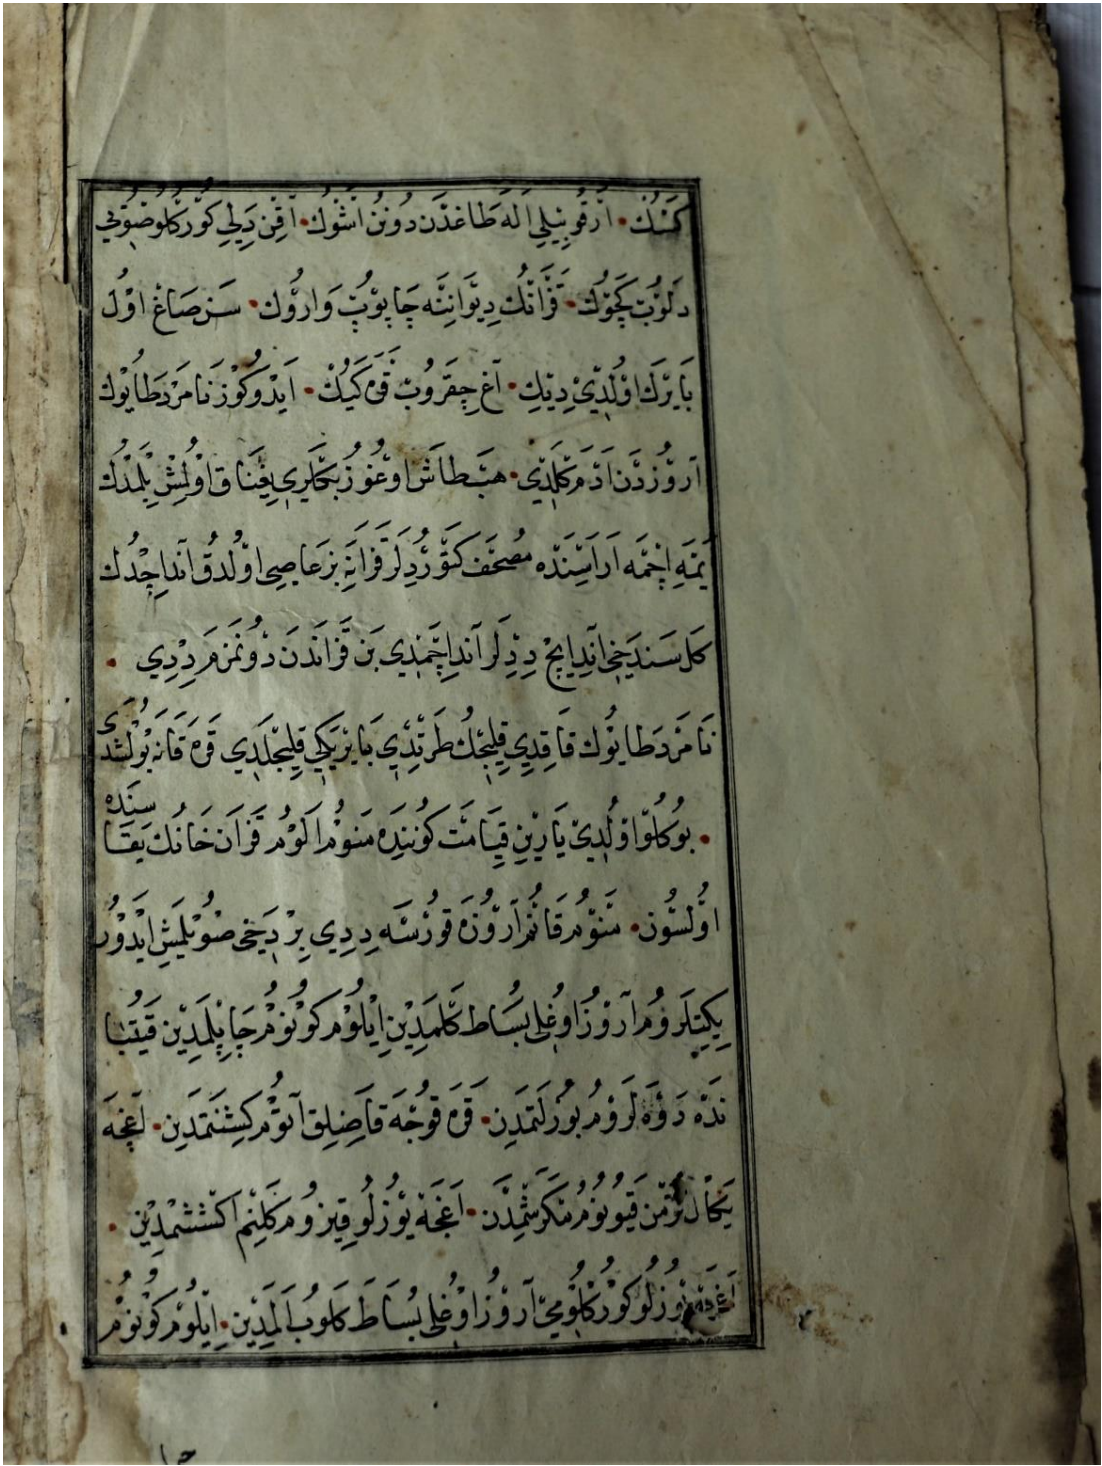 كسك • ارقو بیلی اله طاغدن دونن اشوك • اقن دلی كوركلو صویی
دلوب كچوك • قزانك دیوانینه چاپوب واروك • سن صاغ اول
بایرك اولدی دیك • آغ چقروب قره كیك • ایدو كوز نامرد طایوك
آروزدن ادم كلدی • هب طاش اوغوز بكلری یغناق اولمش بلمدك
یمه اچمه اراسنده مصحف كتوردلر قزانه بز عاصی اولدق آندا چدك
كل سن دخی آندایچ ددلر آندا چمدی بن قزاندن دونمزم ددی •
نامرد طایوك قاقدی قلیجك طرتدی بایركی قلیجلدی قره قانه بولشدی
• بوكلو اولدی یارین قیامت كوننده منوم الوم قزان خانك یقا سنده
اولسون • منوم قانم آروزه قورسه ددی بر دخی صویلمش ایدور
یكیتلروم آروز اوغلی بساط كلمدین ایلوم كونوم چاپلمدین قیتبا
نده دوه لروم بوزلتمدن • قره قوجه قاضلق آتوم كشنتمدین • اغچه
یكال تومن قیونوم منكرشمدن • اغجه یوزلو قیزوم كلینم اكششمدین •
اغجه یوزلو كوركلومی آروز اوغلی بساط كلوب المدین • ایلوم كونوم